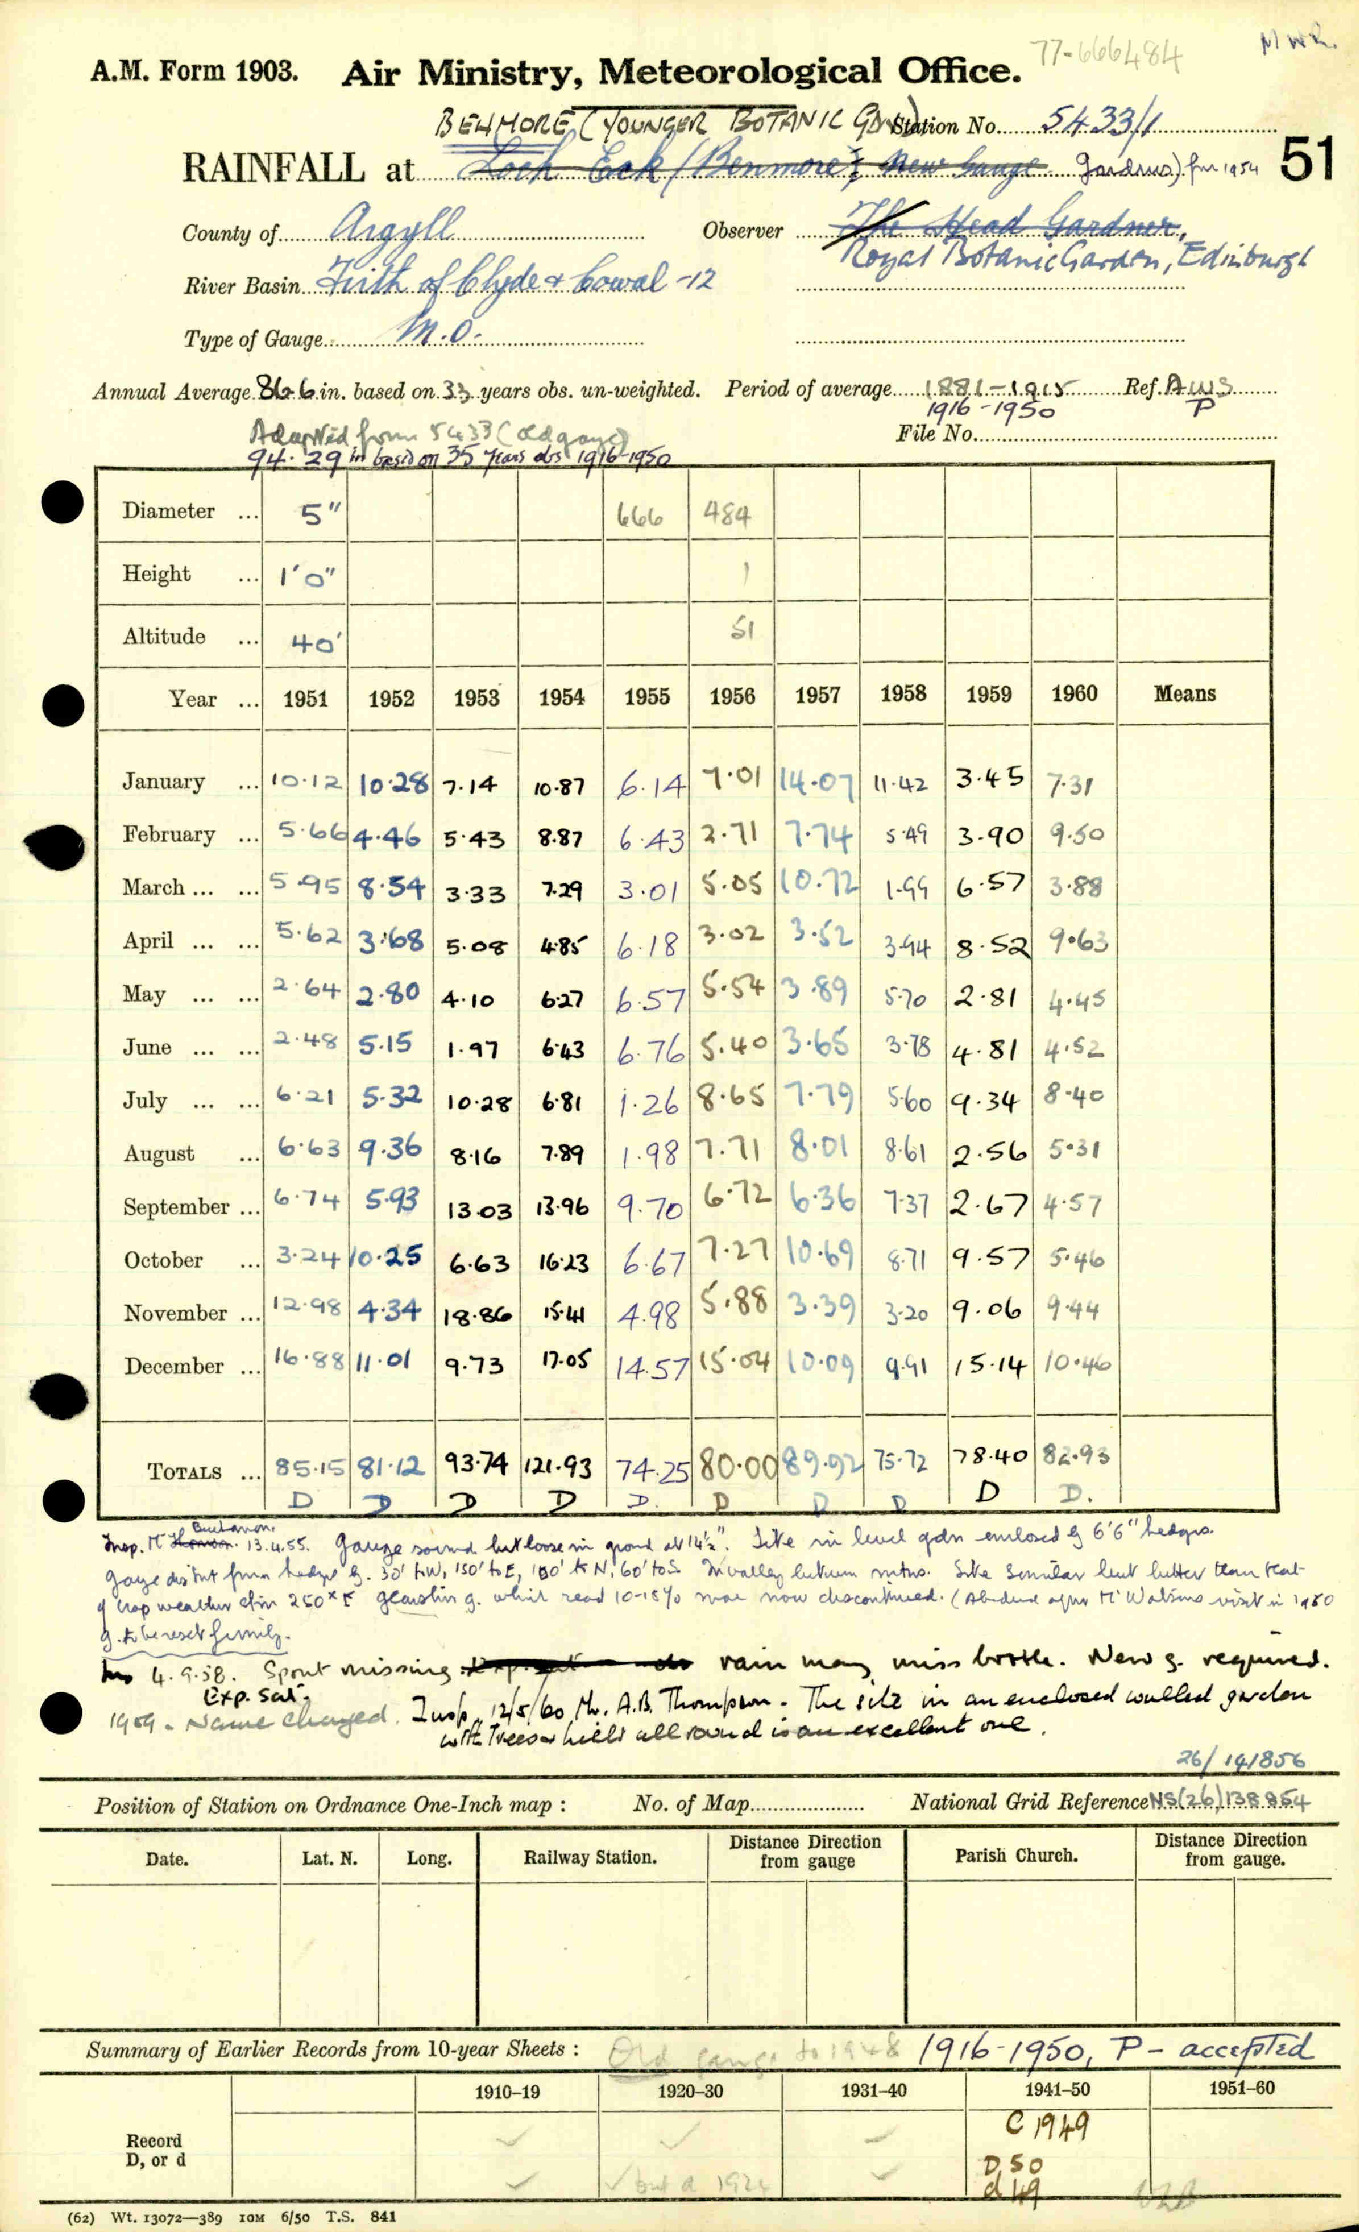 77-666484
M.W.R.
A.M. Form 1903. Air Ministry, Meteorological Office.
BENMORE (YOUNGER BOTANIC GDNS) Station No. 5433/1
RAINFALL at Loch Eck (Benmore; New Gauge Gardens) for 1954 51
County of Argyll Observer The Head Gardner,
Royal Botanic Garden, Edinburgh
River Basin Firth of Clyde & Cowal -12
Type of Gauge M.O.
Annual Average 86.6 in. based on 33 years obs. un-weighted. Period of average 1881-1915 Ref. AWS
1916-1950 P
Adapted from 5433 (old gauge) File No.
94.29 in based on 35 years obs 1916-1950
Diameter ... 5" 666 484
Height ... 1'0" 1
Altitude ... 40' 51
Year ... 1951 1952 1953 1954 1955 1956 1957 1958 1959 1960 Means
January ... 10.12 10.28 7.14 10.87 6.14 7.01 14.07 11.42 3.45 7.31
February ... 5.66 4.46 5.43 8.87 6.43 2.71 7.74 5.49 3.90 9.50
March ... ... 5.95 8.54 3.33 7.29 3.01 5.05 10.72 1.99 6.57 3.88
April ... ... 5.62 3.68 5.08 4.85 6.18 3.02 3.52 3.94 8.52 9.63
May ... ... 2.64 2.80 4.10 6.27 6.57 5.54 3.89 5.70 2.81 4.45
June ... ... 2.48 5.15 1.97 6.43 6.76 5.40 3.65 3.78 4.81 4.52
July ... ... 6.21 5.32 10.28 6.81 1.26 8.65 7.79 5.60 9.34 8.40
August ... 6.63 9.36 8.16 7.89 1.98 7.71 8.01 8.61 2.56 5.31
September ... 6.74 5.93 13.03 13.96 9.70 6.72 6.36 7.37 2.67 4.57
October ... 3.24 10.25 6.63 16.23 6.67 7.27 10.69 8.71 9.57 5.46
November ... 12.98 4.34 18.86 15.41 4.98 5.88 3.39 3.20 9.06 9.44
December ... 16.88 11.01 9.73 17.05 14.57 15.04 10.09 9.91 15.14 10.46
TOTALS ... 85.15 81.12 93.74 121.93 74.25 80.00 89.92 75.72 78.40 82.93
D D D D D. D D D D D.
Buchanan.
Insp. Mr 13.4.55. Gauge sound but loose in ground at 14½". Site in level gdn enclosed by 6'6" hedges.
gauge distant from hedges by 30' to W, 150' to E, 180' to N, 60' to S In valley between mtns. Site similar but better than that
of crop weather stn 250 x E g. which read 10-15% more now discontinued. ( after Mr Watsons visit in 1950
g. to be reset firmly.
4.9.58. Spout missing rain may miss bottle. New g. required.
Exp. sat.
1959 - Name changed. Insp. 12/5/60 Mr. A.B. Thompson. The site in an enclosed walled garden
with Trees & hills all round is an excellent one.
26/141856
Position of Station on Ordnance One-Inch map : No. of Map National Grid Reference NS(26)138854
Date. Lat. N. Long. Railway Station. Distance Direction from gauge Parish Church. Distance Direction from gauge.
Summary of Earlier Records from 10-year Sheets : Old gauge to 1948 1916-1950, P - accepted
1910–19 1920–30 1931–40 1941–50 1951–60
Record
D, or d
C 1949
D 50
d 49
(62) Wt. 13072—389 10M 6/50 T.S. 841